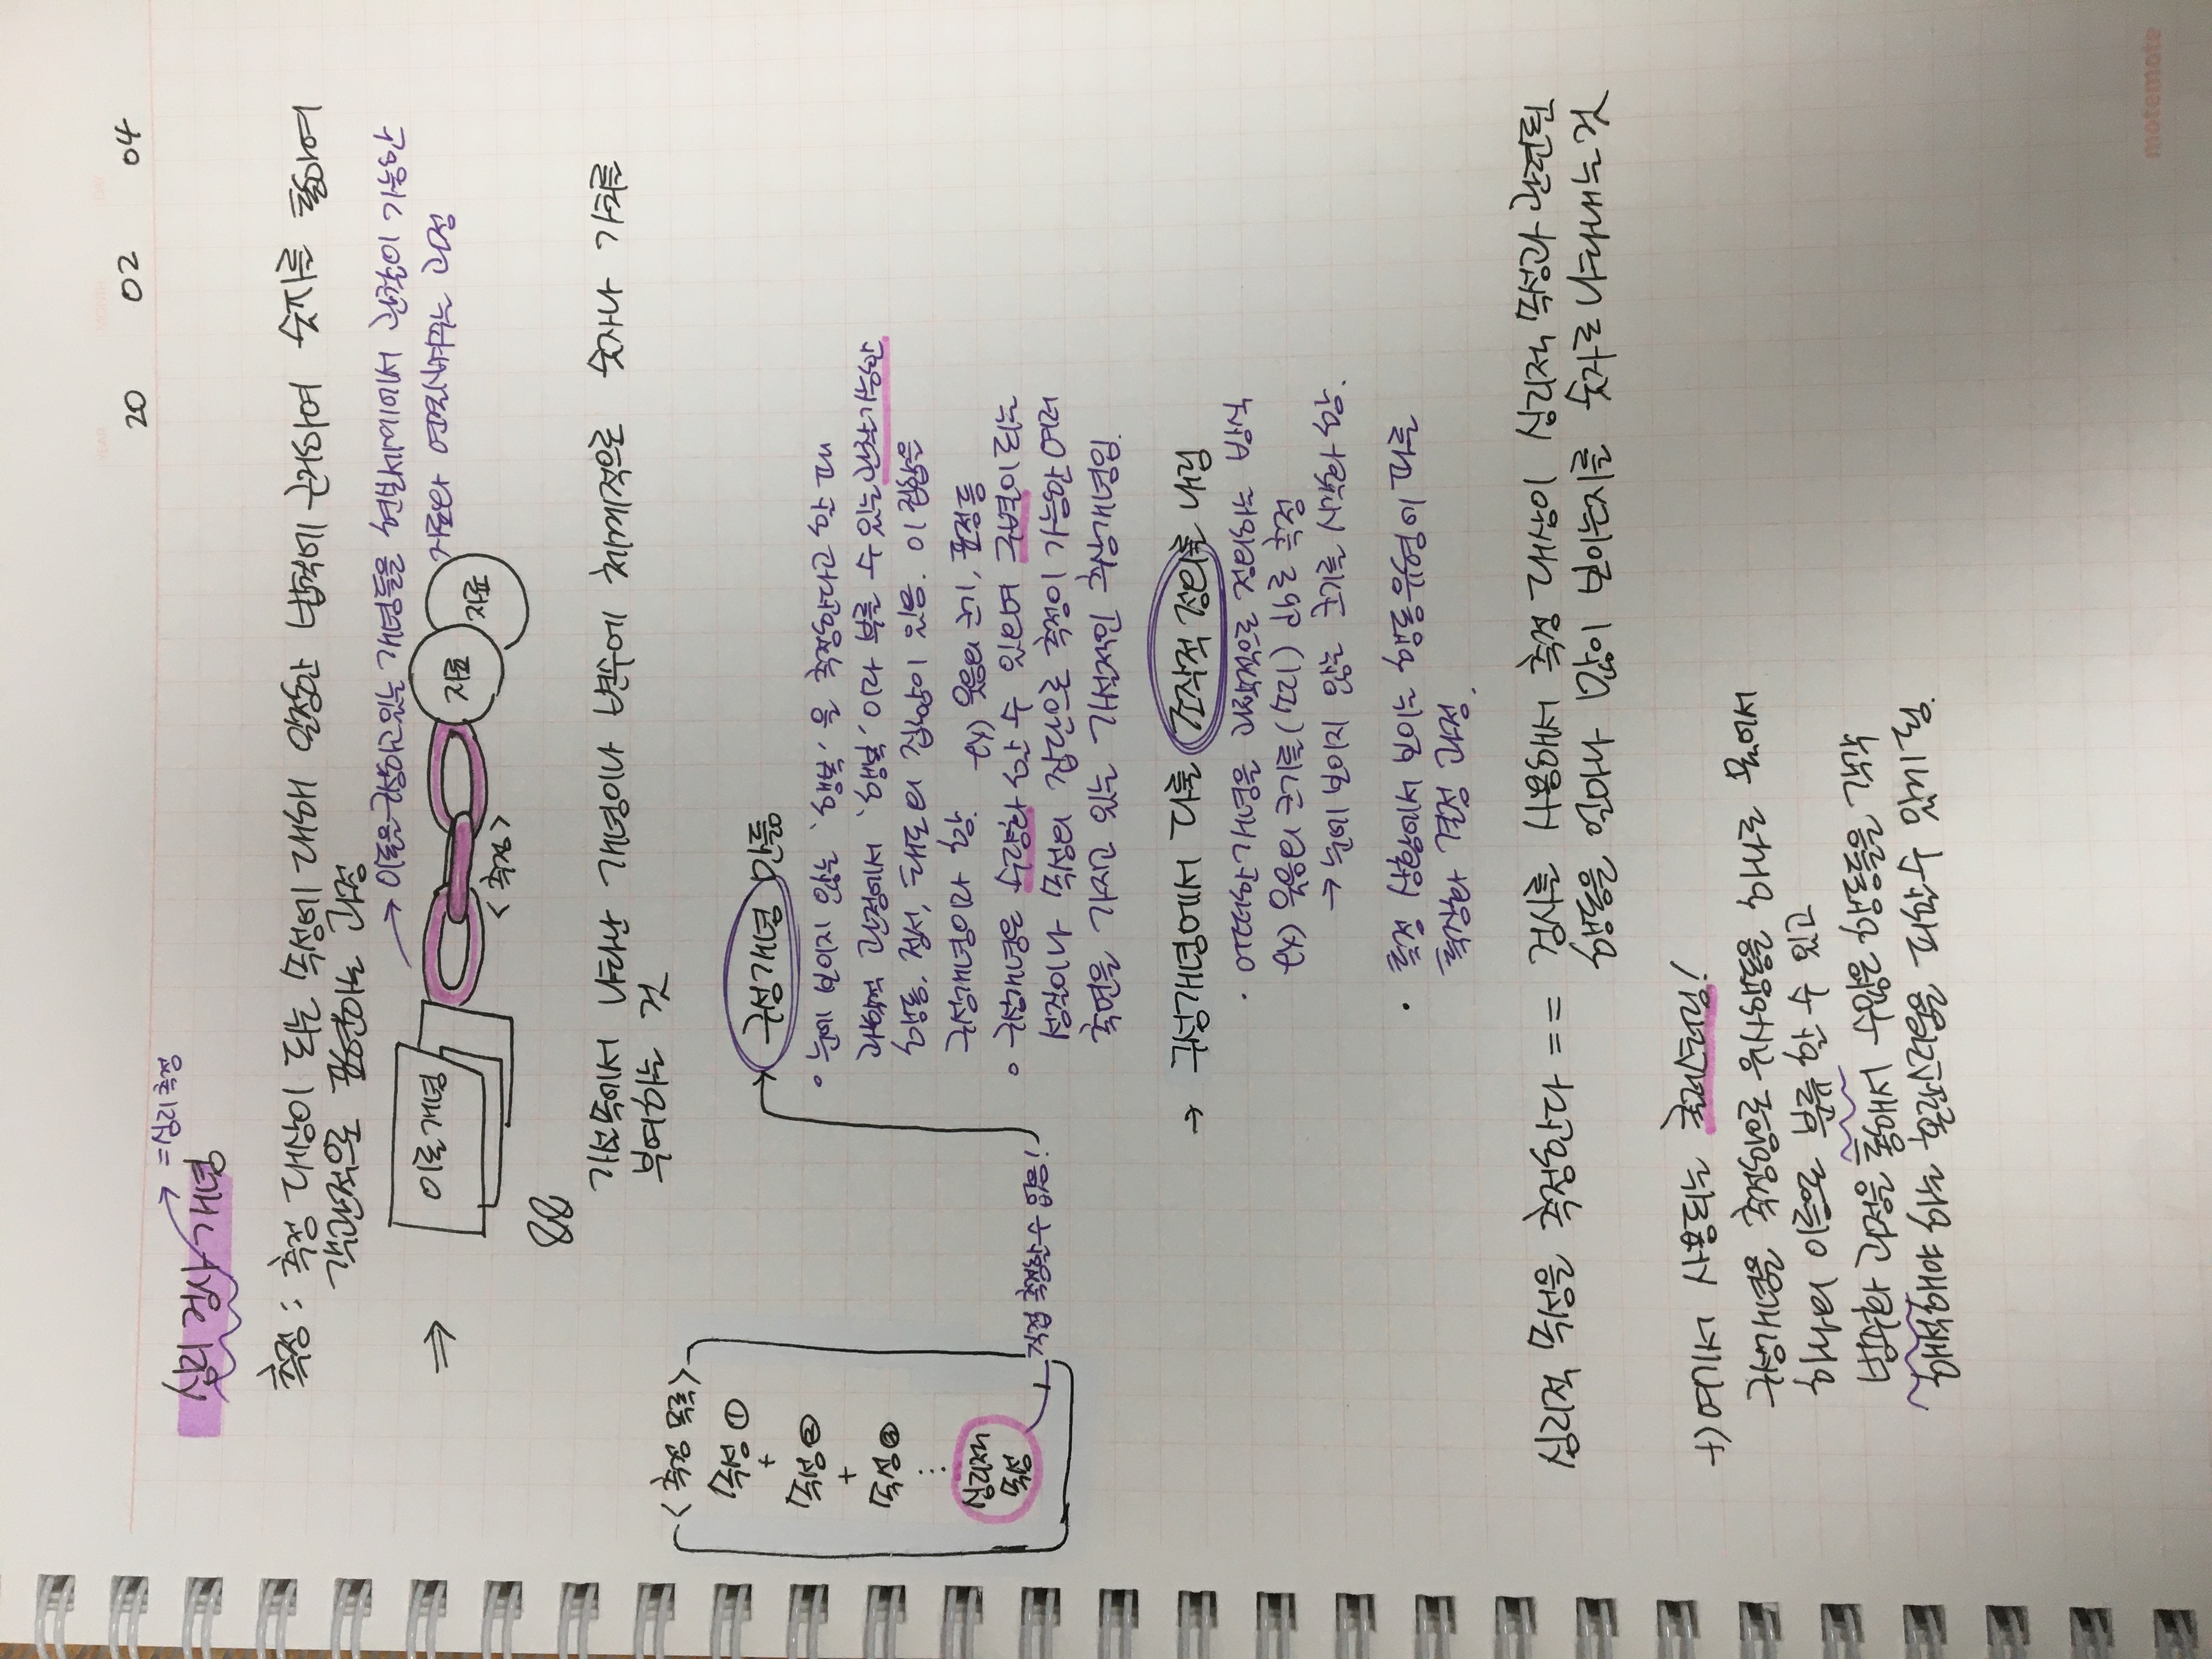 YEAR MONTH DAY
20 02 04
심리 검사 개념 → =심리측정
측정 : 측정 대상이 되는 속성에 대해 일정한 법칙에 근거하여 숫자를 통하여
객관적으로 표현하는 과정
→ 이론을 구성하고 있는 개념들을 현실세계에서 관찰이 가능한
자료와 연결시켜주는 과정
⇒ 이론개념 자료 자료
<측정>
가설속에서 나타난 개념이나 변수에 체계적으로 숫자나 가치를
부여하는 것
<측정 목록>
속성 ①
+
속성 ②
+
속성 ③
⋮
심리적
속성
직접 측정할 수 없음!
→ 구성개념 만듦
• 눈에 보이지 않는 '행복'을 측정한다고 할 때
과학적 관점에서 '행복'이라 부를 수 있는 관찰가능한
행동, 정서, 태도의 집합이 있음. 이 집합을
구성개념이라 함. ex) 웃음의 크기, 표정 등
• 구성개념은 수량화 할 수 있으며 구별이 되는
성질이나 속성의 집단으로 측정이 가능한 여러
측면을 가지고 있는 가설적인 추상개념임.
→ 구성개념에서 다룰 조작적 정의를 내림
· 어떠한 개념을 과학적으로 정의하는 방식
ex) 웃음의 크기를 (소리) db로 측정
→ 눈에 보이지 않는 크기를 시각화 함.
· 특정 상황에서 보이는 행동유형에 따를
특징화 결정 과정.
심리적 속성을 측정한다 == 검사를 사용해서 측정 대상이 심리적 속성과 관련된
행동을 얼마나 많이 보이는지를 숫자로 나타내는 것
+) 여기서 사용되는 클러스터링!
구성개념을 측정함으로 유사행동을 하나로 묶어서
하나의 이름으로 분류할 수 있고
범주화 과정을 통해서 수많은 행동들을 각각
해석해야 하는 혼란스러움을 피할 수 있게 됨.
motemote